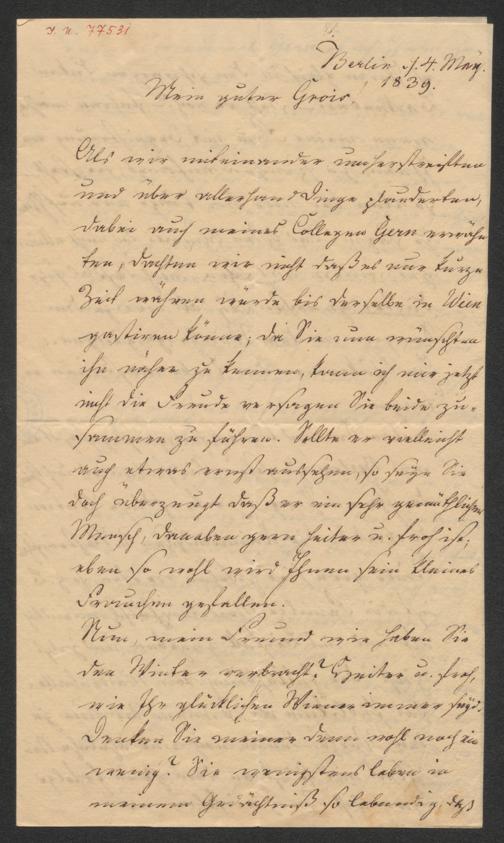 I. N. 77531
Berlin d. 4. May.
1839.
Mein guter Grois!
Als wir miteinander umherstreiften
und über allerhand Dinge plauderten,
dabei auch meines Collegen Gern erwähn
ten, dachten wir nicht daß es nur kurze
Zeit währen würde bis derselbe in Wien
gastiren könne; da Sie nun wünschten
ihn näher zu kennen, kann ich mir jetzt
nicht die Freude versagen Sie beide zu-
sammen zu führen. Sollte er vielleicht
auch etwas ernst aussehen, so seyn Sie
doch überzeugt daß er ein sehr gemüthlicher
Mensch, daneben gern heiter u. froh ist;
eben so wohl wird Ihnen sein kleines
Frauchen gefallen.
Nun, mein Freund wie haben Sie
den Winter verbracht? Heiter u. froh,
wie Ihr glücklichen Wiener immer seyd.
Denken Sie meiner denn wohl noch ein
wenig? Sie wenigstens leben in
meinem Gedächtniß so lebendig, daß